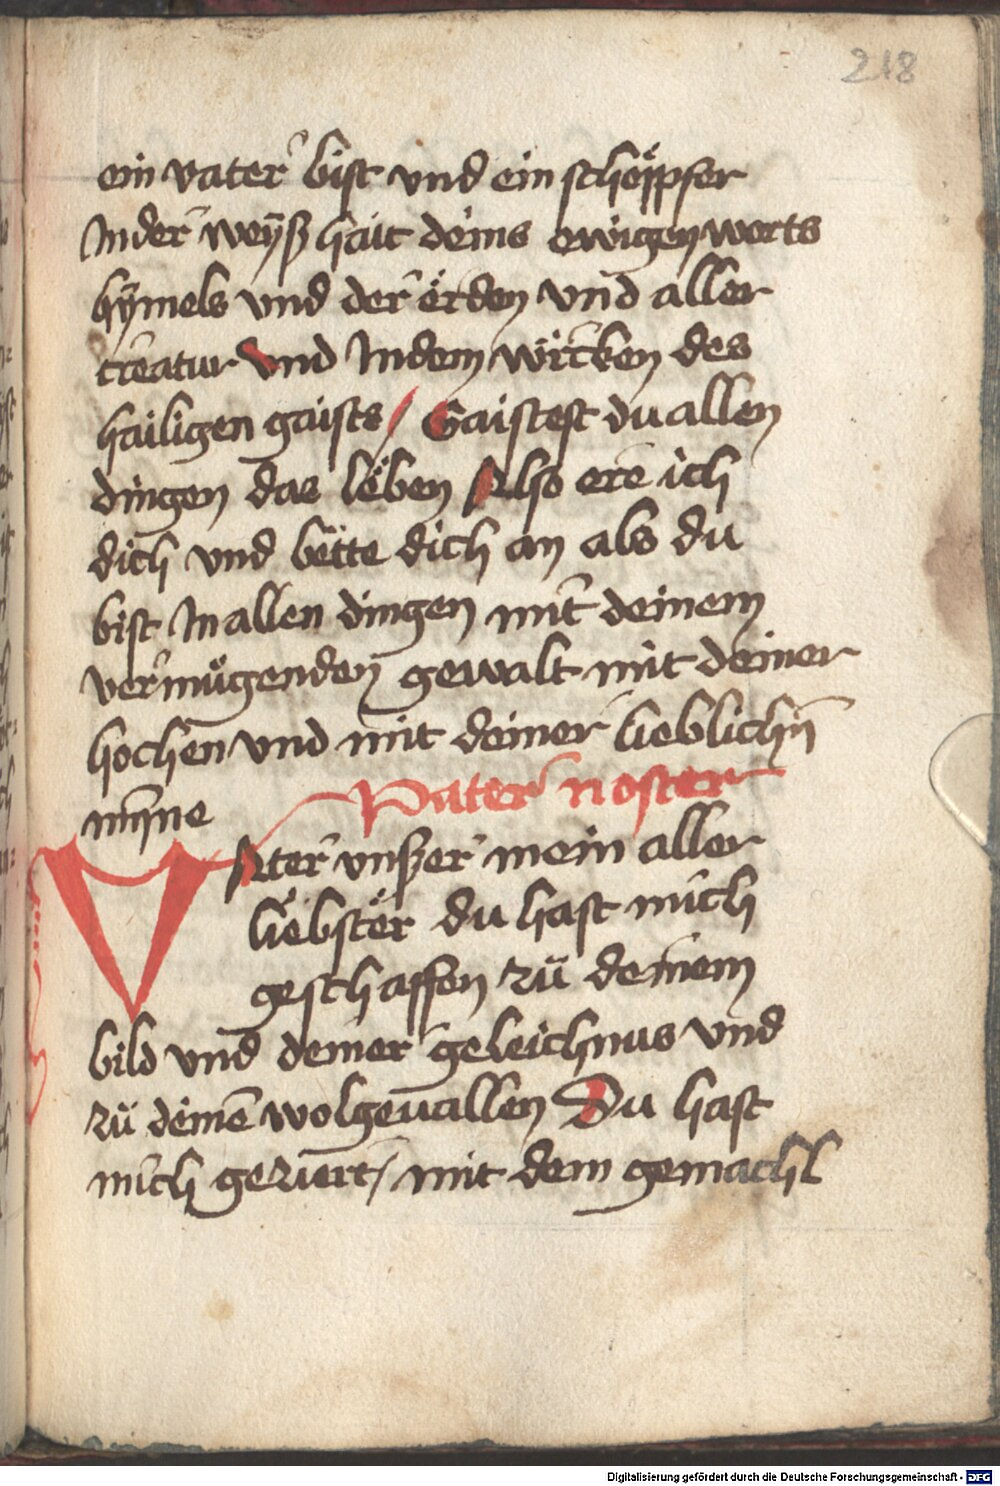 218
ein vater bist vnd ein schöpfer
In der weyßhait deins ewigen worts
hÿmels vnd der erden vnd aller
creatur Vnd In dem würcken des
hailigen gaists / Gaistest du allen
dingen das leben Also ere ich
dich vnd bette dich an als du
bist In allen dingen mit deinem
vermügenden gewalt mit deiner
hochen vnd mit deiner lieblichñ
mỹne Pater noster
VAter vnßer mein aller
liebster du hast mich
geschaffen zů deinem
bild vnd deiner geleichnus vnd
zů deinē wolgeuallen Du hast
mich geziert / mit dem gemachl
Digitalisierung gefördert durch die Deutsche Forschungsgemeinschaft - DFG